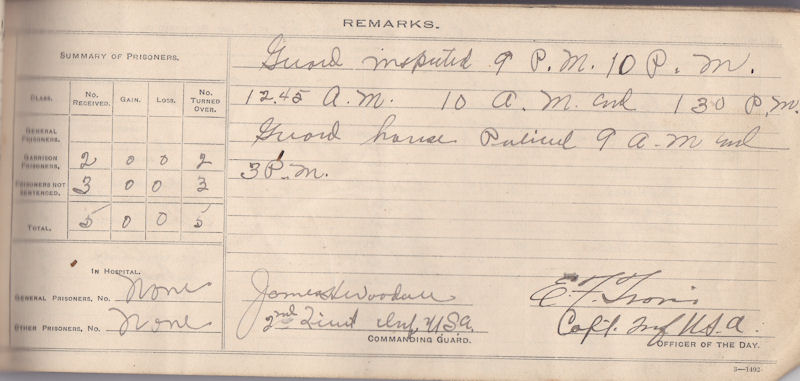 REMARKS.
SUMMARY OF PRISONERS.
CLASS. No. RECEIVED. GAIN. LOSS. No. TURNED OVER.
GENERAL PRISONERS.
GARRISON PRISONERS. 2 0 0 2
PRISONERS NOT SENTENCED. 3 0 0 3
TOTAL. 5 0 0 5
IN HOSPITAL.
GENERAL PRISONERS, No. None
OTHER PRISONERS, No. None
Guard inspected 9 P.M. 10 P.M.
12.45 A.M. 10 A.M. and 1 30 P.M.
Guard house Policed 9 A.M and
3 P.M.
James H Woodall
2nd Lieut Inf. U.S.A.
COMMANDING GUARD.
E. F.
Capt. Inf U.S.A.
OFFICER OF THE DAY.
3—1492